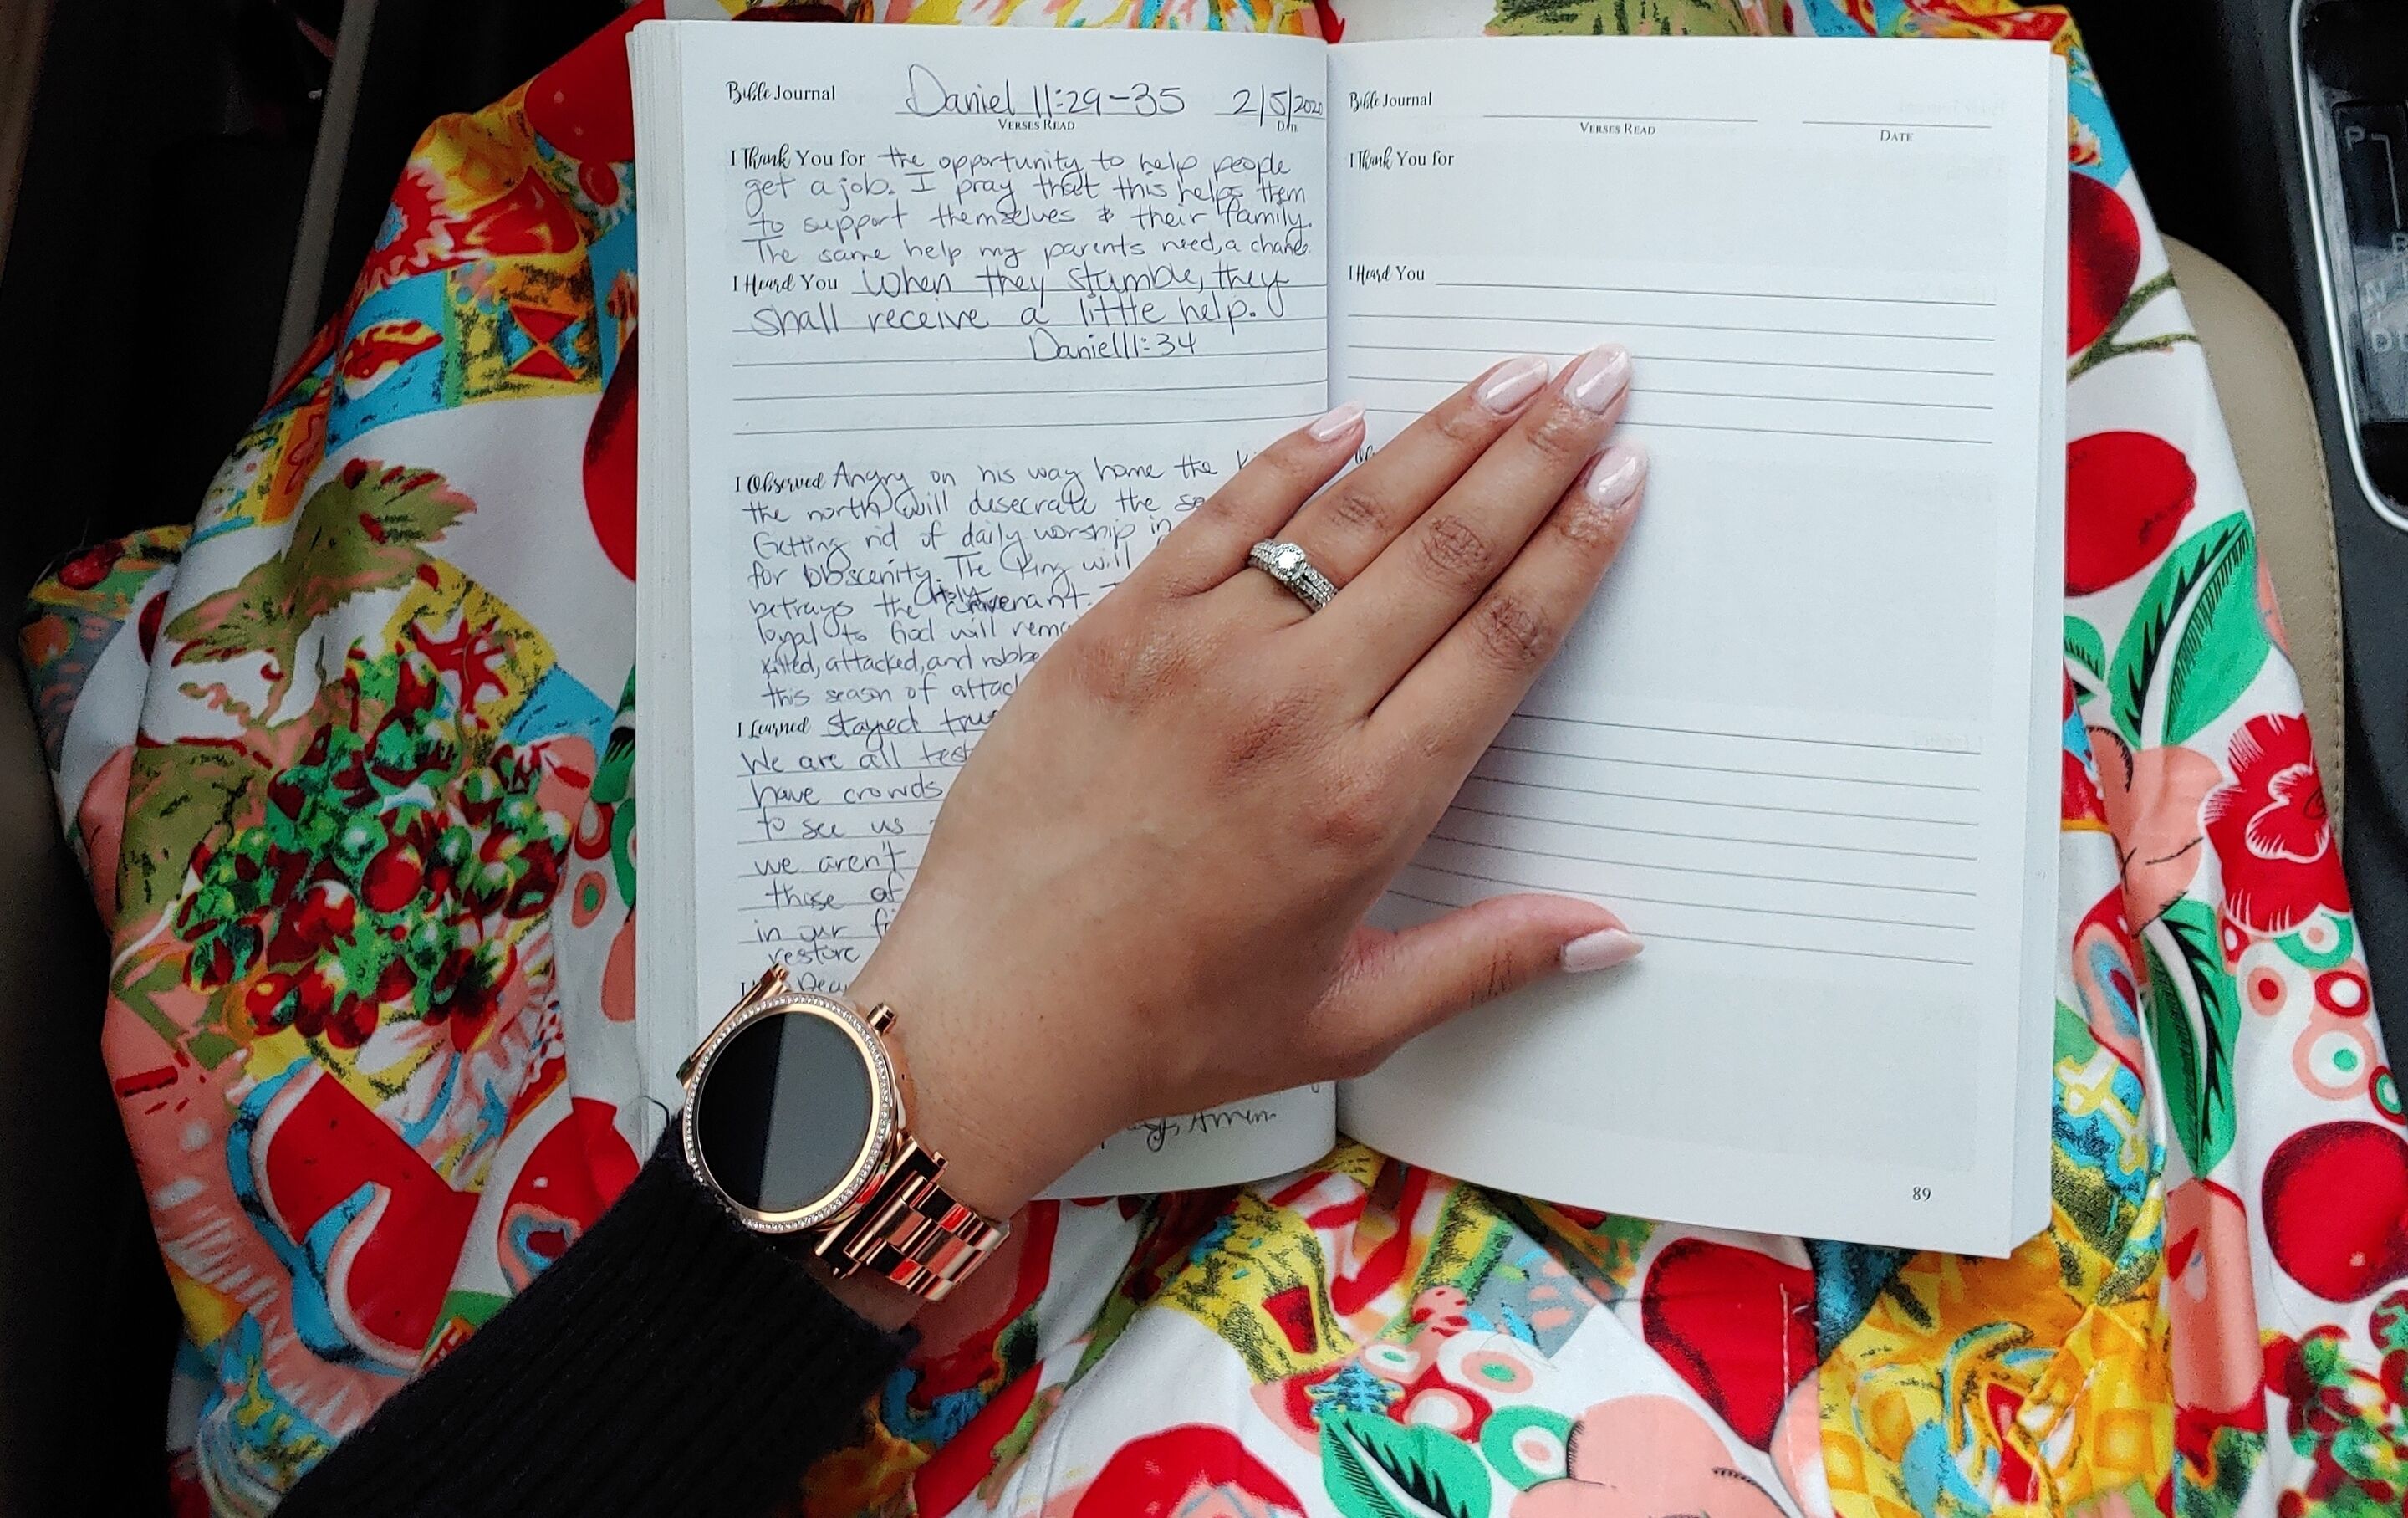 Bible Journal Daniel 11:29-35 2/5/2020
VERSES READ DATE
I Thank You for the opportunity to help people
get a job. I pray that this helps them
to support themselves & their family.
The same help my parents need, a chance.
I Heard You When they stumble, they
shall receive a little help.
Daniel 11:34
I Observed Angry on his way home the
the north will desecrate the
Getting rid of daily worship in
for obscenity. The King will
betrays the Holy Covenant.
loyal to God will
killed, attacked, and
this season of
I Learned stayed
We are all
have crowds
to see us
we aren't
those of
in our
restore
Dear
Amen.
Bible Journal
VERSES READ DATE
I Thank You for
I Heard You
89
P